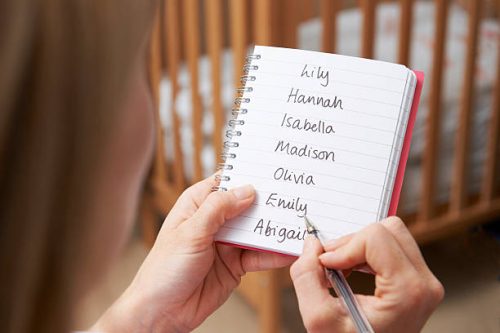 Lily
Hannah
Isabella
Madison
Olivia
Emily
Abigail